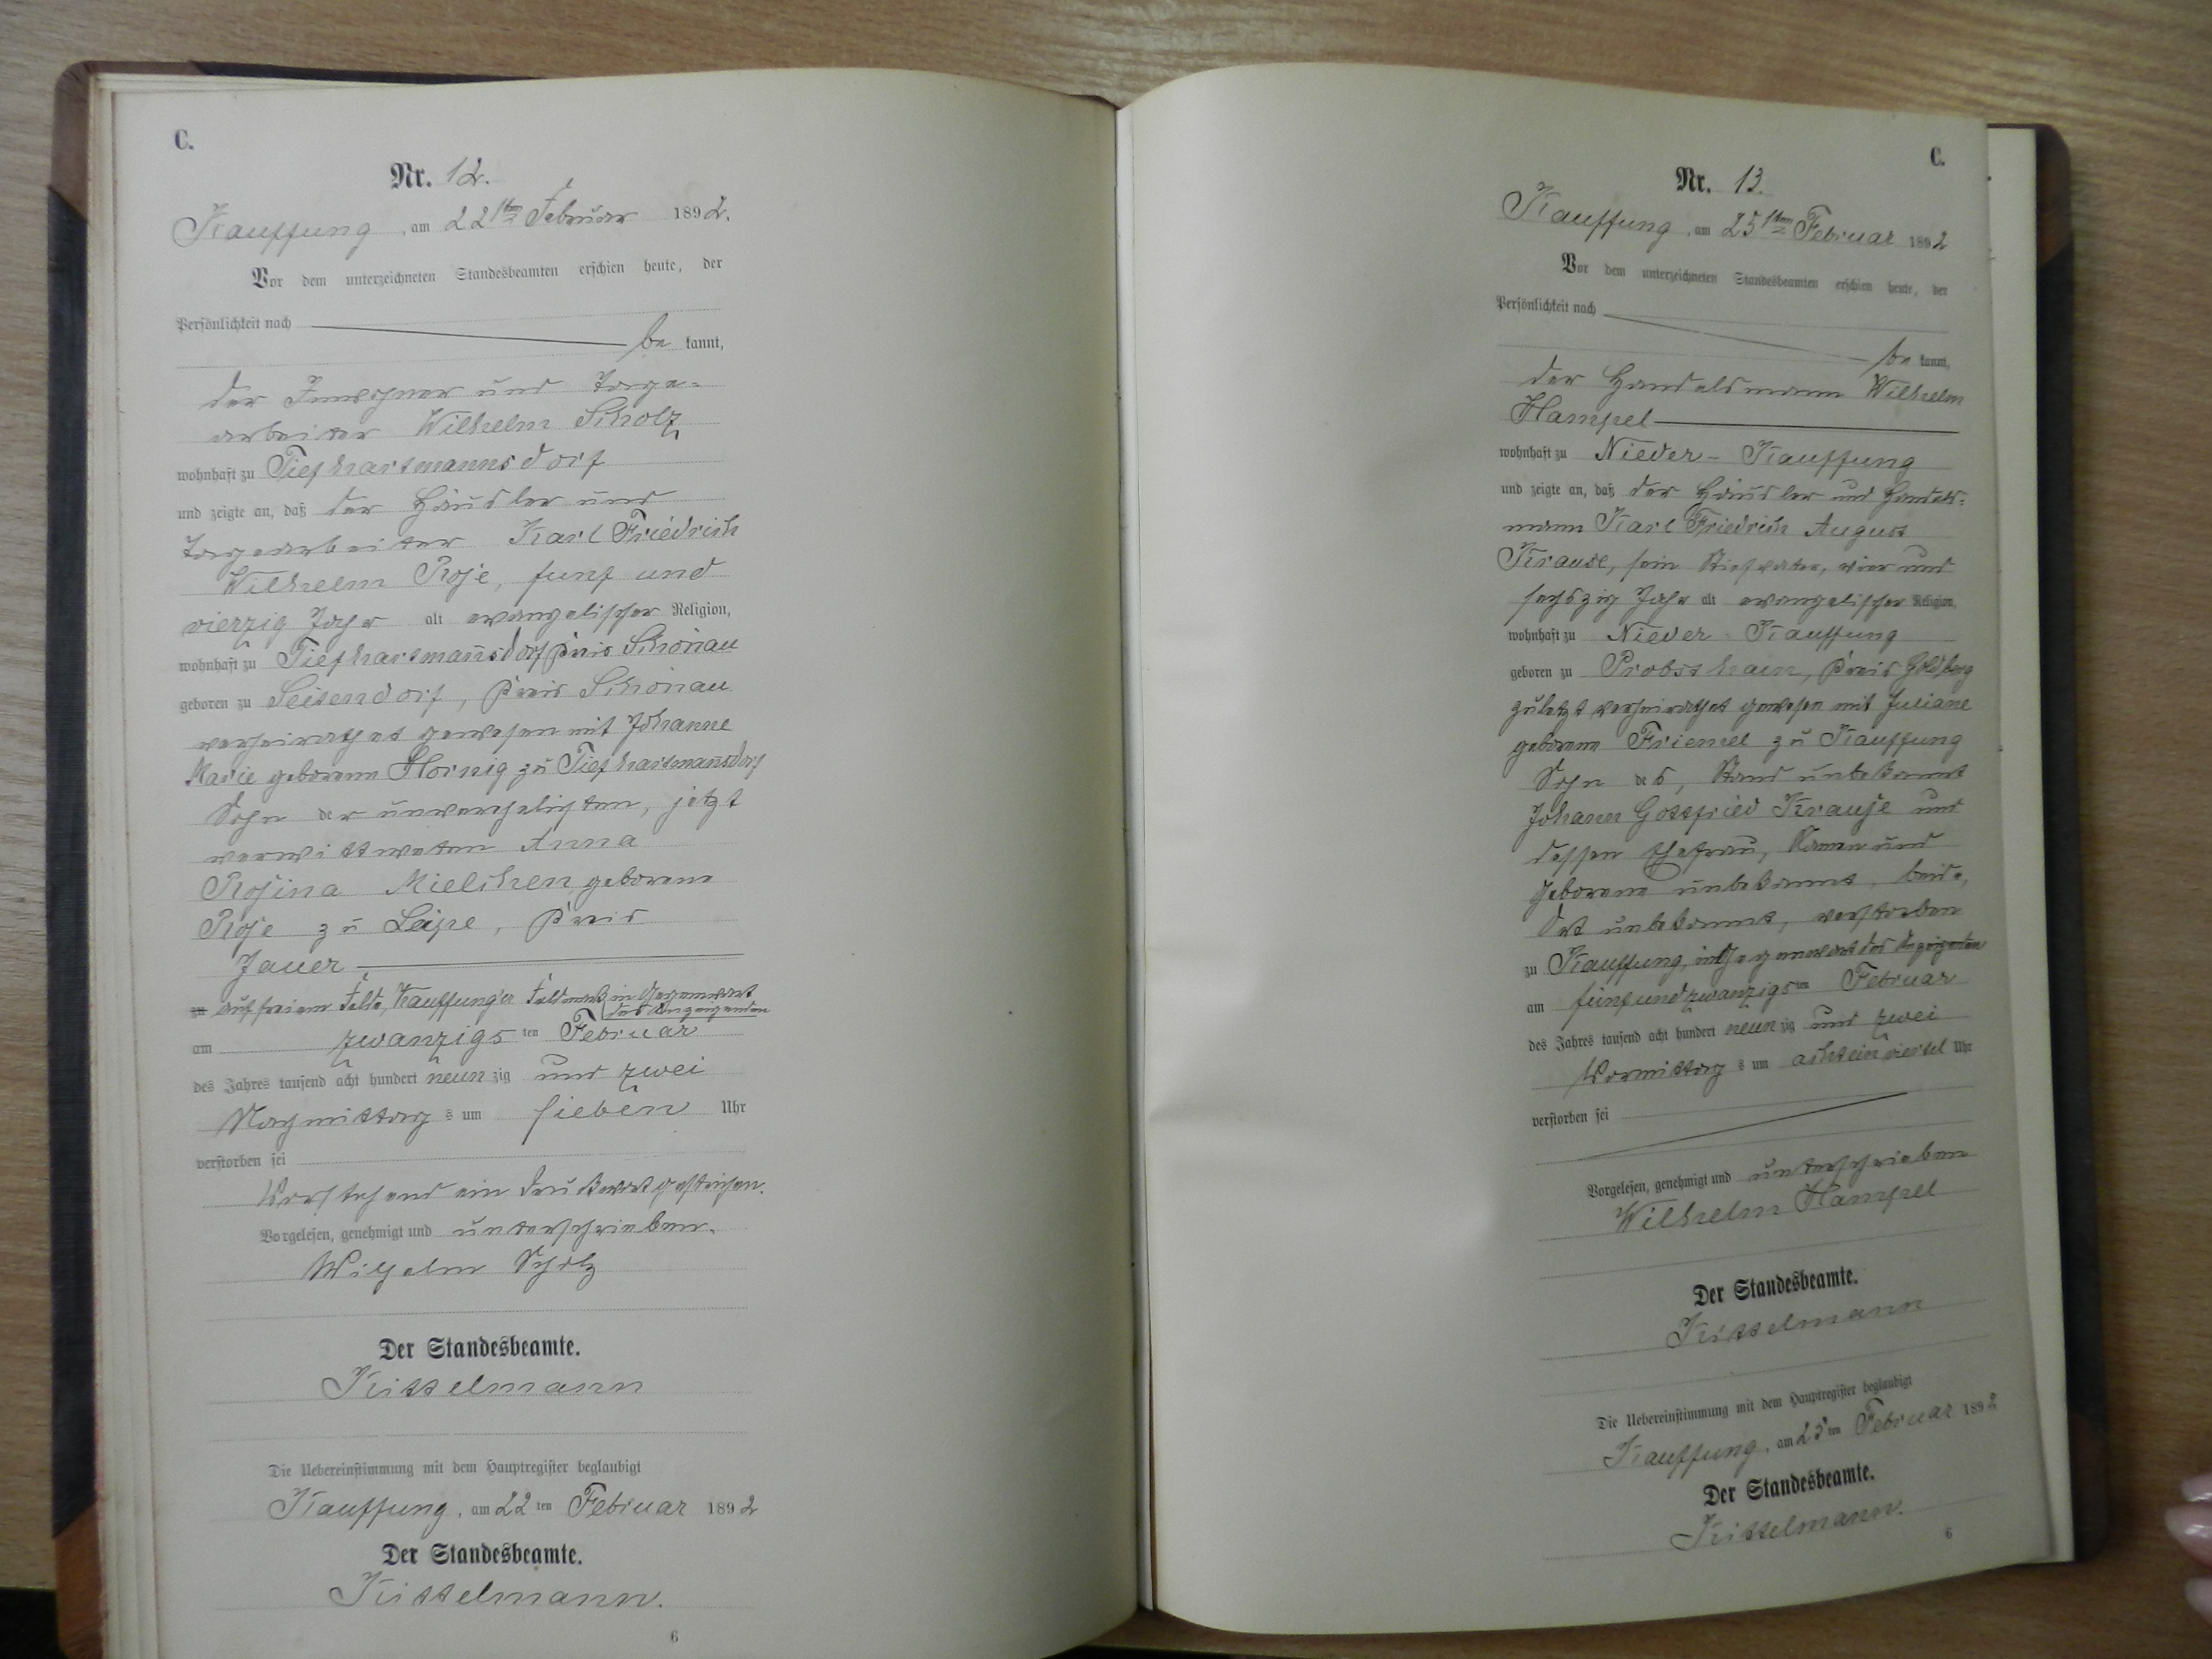 C.
Nr. 12.
Kauffung, am 22ten Februar 1892.
Vor dem unterzeichneten Standesbeamten erschien heute, der
Persönlichkeit nach
be kannt,
der Inwohner und Tage-
arbeiter Wilhelm Scholz
wohnhaft zu Tiefhartmannsdorf
und zeigte an, daß der Häusler und
Tagearbeiter Karl Friedrich
Wilhelm Rose, funf und
vierzig Jahr alt evangelischer Religion,
wohnhaft zu Tiefhartmannsdorf Kreis Schönau
geboren zu Seitendorf, Kreis Schönau
verheirathet gewesen mit Johanne
Marie geborenen Hornig zu Tiefhartmannsdorf
Sohn der unverehelichten, jetzt
verwittweten Anna
Rosina Mielchen, geborene
Rose zu Leipe, Kreis
Jauer
zu auf freiem Felde, Kauffunger Feldmark in Gegenwart
des Anzeigenden
am zwanzigs ten Februar
des Jahres tausend acht hundert neun zig und zwei
Nachmittag s um sieben Uhr
verstorben sei
Vorstehend ein Druckwort gestrichen.
Vorgelesen, genehmigt und unterschrieben.
Wilhelm Scholz
Der Standesbeamte.
Kittelmann
Die Uebereinstimmung mit dem Hauptregister beglaubigt
Kauffung, am 22 ten Februar 1892
Der Standesbeamte.
Kittelmann.
6
C.
Nr. 13.
Kauffung, am 25ten Februar 1892
Vor dem unterzeichneten Standesbeamten erschien heute, der
Persönlichkeit nach
be kannt,
der Handelsmann Wilhelm
Hampel
wohnhaft zu Nieder-Kauffung
und zeigte an, daß der Häusler und Handels-
mann Karl Friedrich August
Krause, sein Stiefvater, vier und
sechszig Jahr alt evangelischer Religion,
wohnhaft zu Nieder-Kauffung
geboren zu Probsthain, Kreis Goldberg
zuletzt verheirathet gewesen mit Juliane
geborene Friemel zu Kauffung
Sohn des, Stand unbekannt
Johann Gottfried Krause und
dessen Ehefrau, Namen und
Geborene unbekannt, beide,
Ort unbekannt, verstorben
zu Kauffung, in Gegenwart des Anzeigenden
am fünfundzwanzigs ten Februar
des Jahres tausend acht hundert neun zig und zwei
Vormittag s um achteinviertel Uhr
verstorben sei
Vorgelesen, genehmigt und unterschrieben
Wilhelm Hampel
Der Standesbeamte.
Kittelmann
Die Uebereinstimmung mit dem Hauptregister beglaubigt
Kauffung, am 25 ten Februar 1892
Der Standesbeamte.
Kittelmann.
6